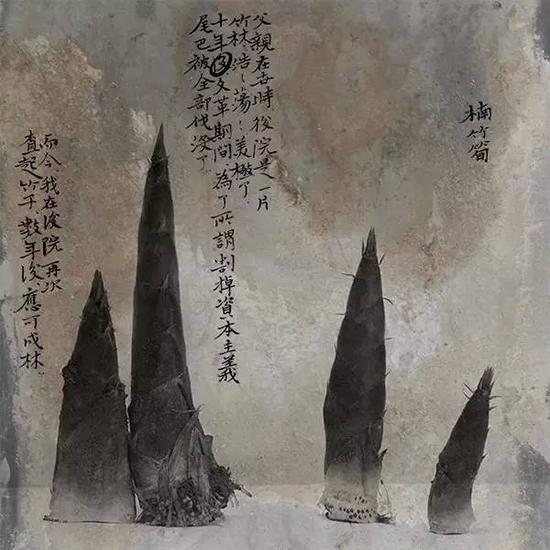 楠竹筍
父親在世時，後院是一片
竹林，浩〻蕩〻，美極了。
十年文革期間，為了所謂割掉資本主義
尾巴被全部伐没了。
而今，我在後院再次
直起竹子，數年後，應可成林。